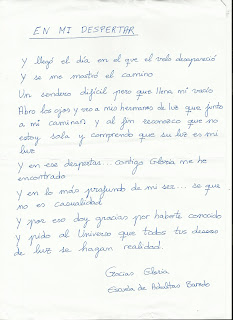 EN MI DESPERTAR
Y llegó el día en el que el velo desapareció
Y se me mostró el camino
Un sendero difícil pero que llena mi vacío
Abro los ojos y veo a mis hermanos de luz que junto
a mi caminan y al fin reconozco que no
estoy sola y comprendo que su luz es mi
luz
Y en ese despertar... contigo Gloria me he
encontrado
Y en lo más profundo de mi ser... se que
no es casualidad
Y por eso doy gracias por haberte conocido
y pido al Universo que todos tus deseos
de luz se hagan realidad.
Gracias Gloria
de